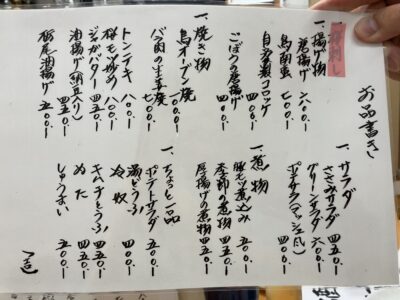 お品書き
一、揚げ物
唐揚げ 六八〇.一
鳥南蛮 七〇〇.一
自家製コロッケ
ごぼうの唐揚げ 四〇〇.一
一、焼き物
鳥オーブン焼 一、〇〇〇.一
バラ肉の生姜焼 七〇〇.一
トンテキ 八〇〇.一
豚モツ炒め 八〇〇.一
ジャガバター 四五〇.一
油揚げ(納豆入り) 四五〇.一
栃尾油揚げ 五〇〇.一
一、サラダ
ささみサラダ 四五〇.一
グリーンサラダ 六〇〇.一
ポテサラ(マッシュ風) 四〇〇.一
一、煮物
豚モツ煮込み 五〇〇.一
季節の煮物 四五〇.一
厚揚げの煮物 四五〇.一
一、ちょっと一品
ポテトサラダ 五〇〇.一
湯どうふ 五〇〇.一
冷奴 四〇〇.一
キムチとうふ 四五〇.一
ぬた 四五〇.一
しゅうまい 五〇〇.一